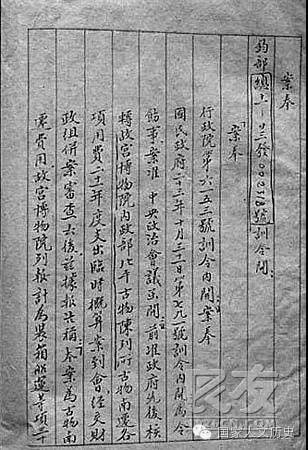 案奉
鈞部總號訓令開
「案奉
行政院第六一五三號訓令內開案奉
國民政府三十一日第七九一號訓令內開為令
飭事案准 中央政治會議函開 前准政府先後核
轉故宮博物院內政部北平古物陳列所古物南遷各
項用費二十一年度支出臨時概算案到會經交財
政組併案審查去後茲據報告稱本案為古物南
運費用故宮博物院列報計為裝箱船運等項
国家人文历史